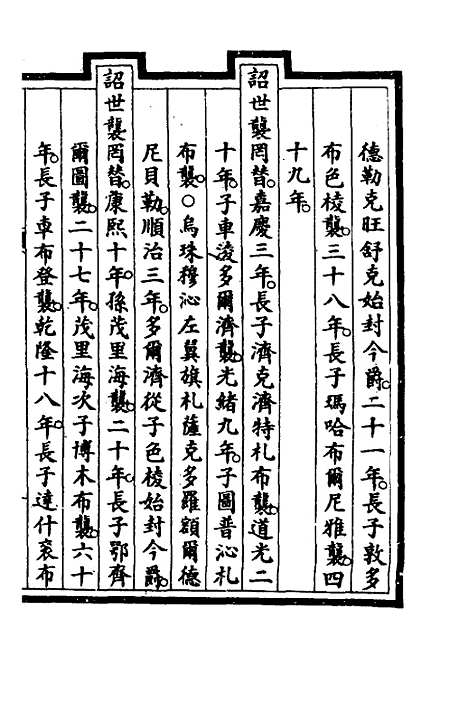 德勒克旺舒克始封今爵。二十一年。長子敦多
布色棱襲。三十八年。長子瑪哈布爾尼雅襲。四
十九年。
詔世襲罔替。嘉慶三年。長子濟克濟特札布襲。道光二
十年。子車淩多爾濟襲。光緒九年。子圖普沁札
布襲。○烏珠穆沁左翼旗札薩克多羅額爾德
尼貝勒。順治三年。多爾濟從子色棱始封今爵。
詔世襲罔替。康熙十年。孫茂里海襲。二十年。長子鄂齊
爾圖襲。二十七年。茂里海次子博木布襲。六十
年。長子車布登襲。乾隆十八年。長子達什袞布